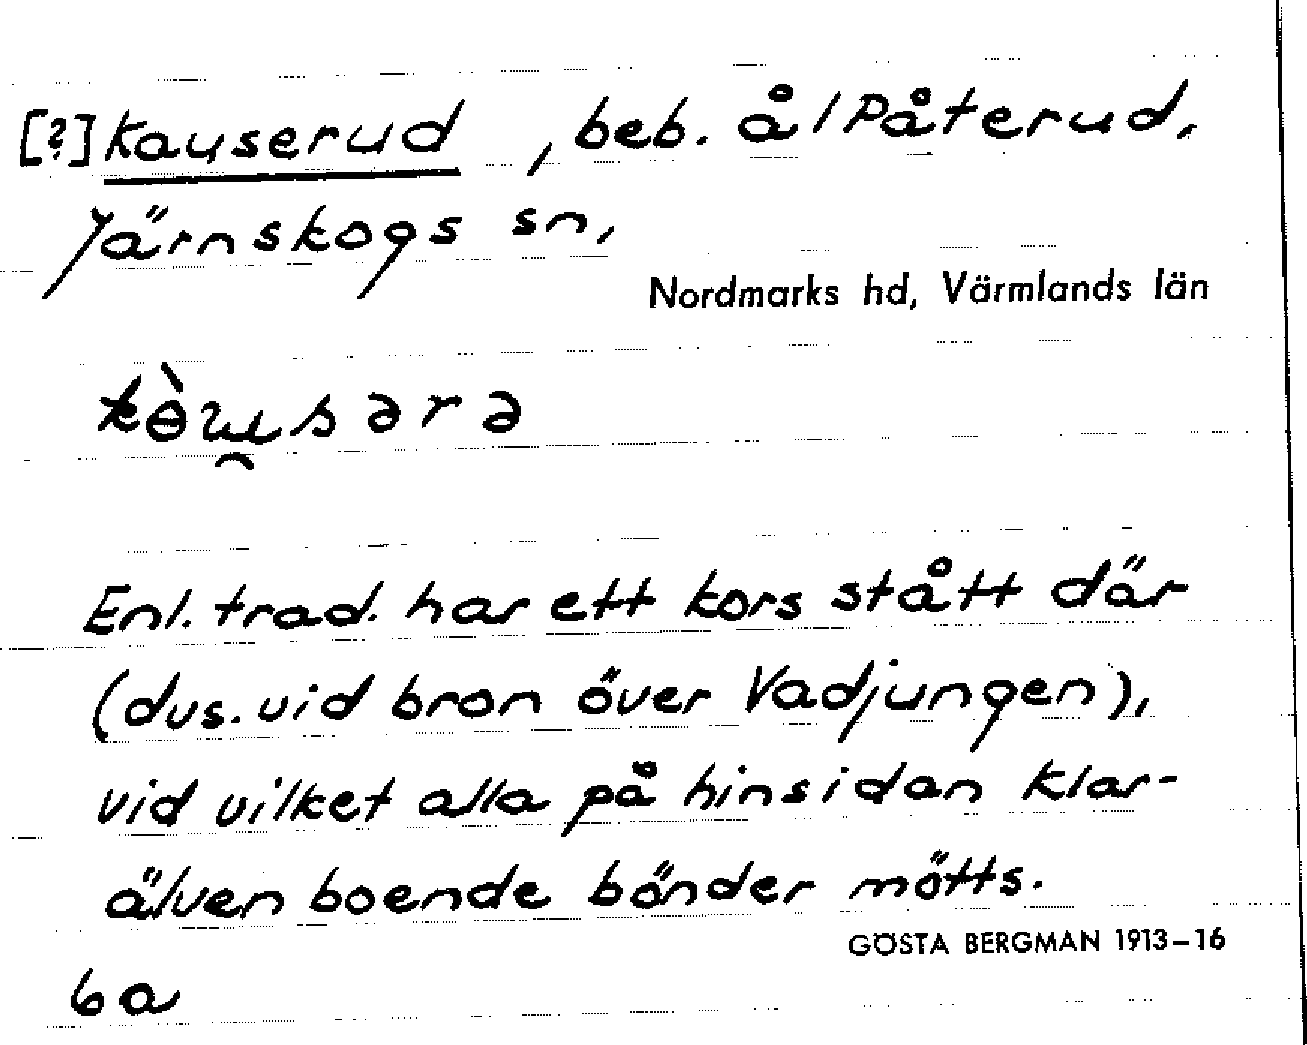 [?] Kauserud , beb. å l Påterud,
Järnskogs sn,
Nordmarks hd, Värmlands län
Enl. trad. har ett kors stått där
(dvs. vid bron över Vadjungen),
vid vilket alla på hinsidan Klar-
älven boende bönder mötts.
GÖSTA BERGMAN 1913–16
6a